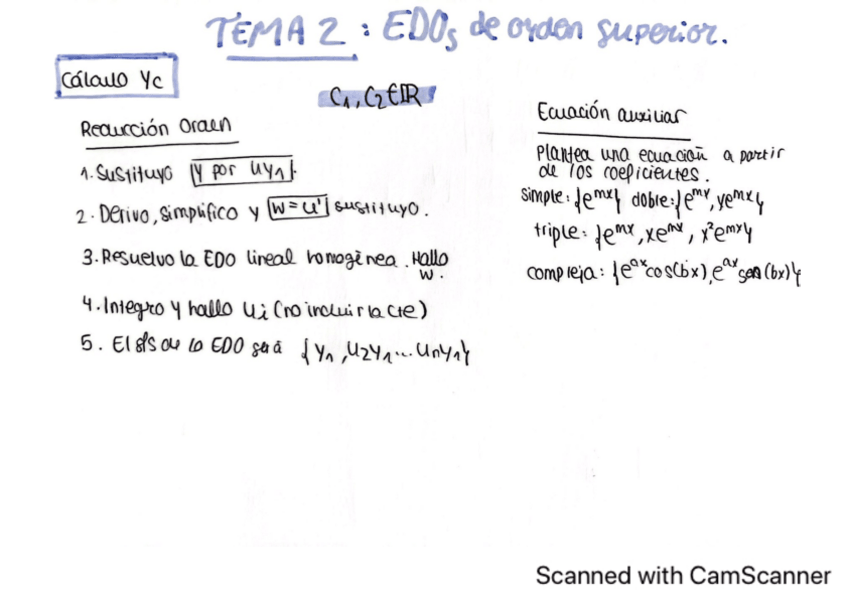 TEMA 2 : EDOs de orden superior.
Cálculo Yc
C₁, C₂ ∈ ℝ
Reducción Orden
1. Sustituyo y por uy₁.
2. Derivo, simplifico y w = u' sustituyo.
3. Resuelvo la EDO lineal homogénea. Hallo
w.
4. Integro y hallo ui (no incluir la cte)
5. El sfs de la EDO será {y₁, u₂y₁... uₙy₁}
Ecuación auxiliar
Plantea una ecuación a partir
de los coeficientes.
simple: {eᵐˣ} doble: {eᵐˣ, xeᵐˣ}
triple: {eᵐˣ, xeᵐˣ, x²eᵐˣ}
compleja: {eᵃˣcos(bx), eᵃˣ sen(bx)}
Scanned with CamScanner